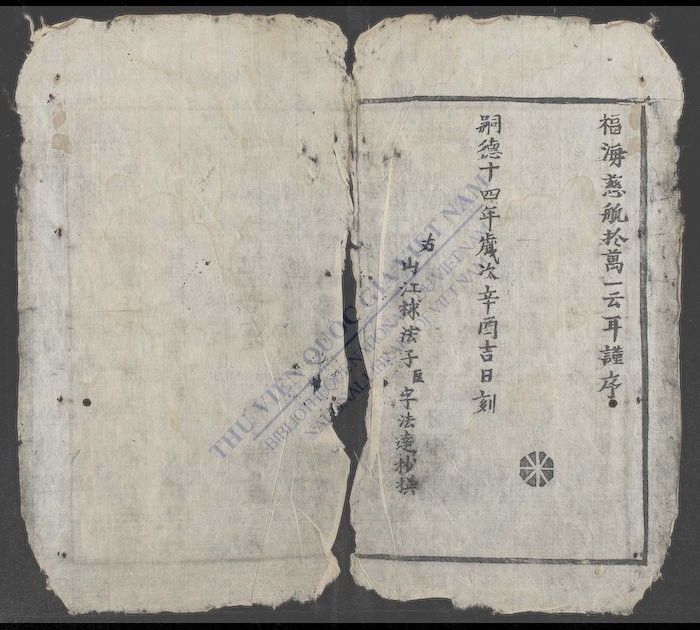 福海慈航於萬一云耳謹序
嗣德十四年歲次辛酉吉日刻
右山江捄法子臣字法達抄撰
THƯ VIỆN QUỐC GIA VIỆT NAM
BIBLIOTHÈQUE NATIONALE DU VIETNAM
NATIONAL LIBRARY OF VIETNAM